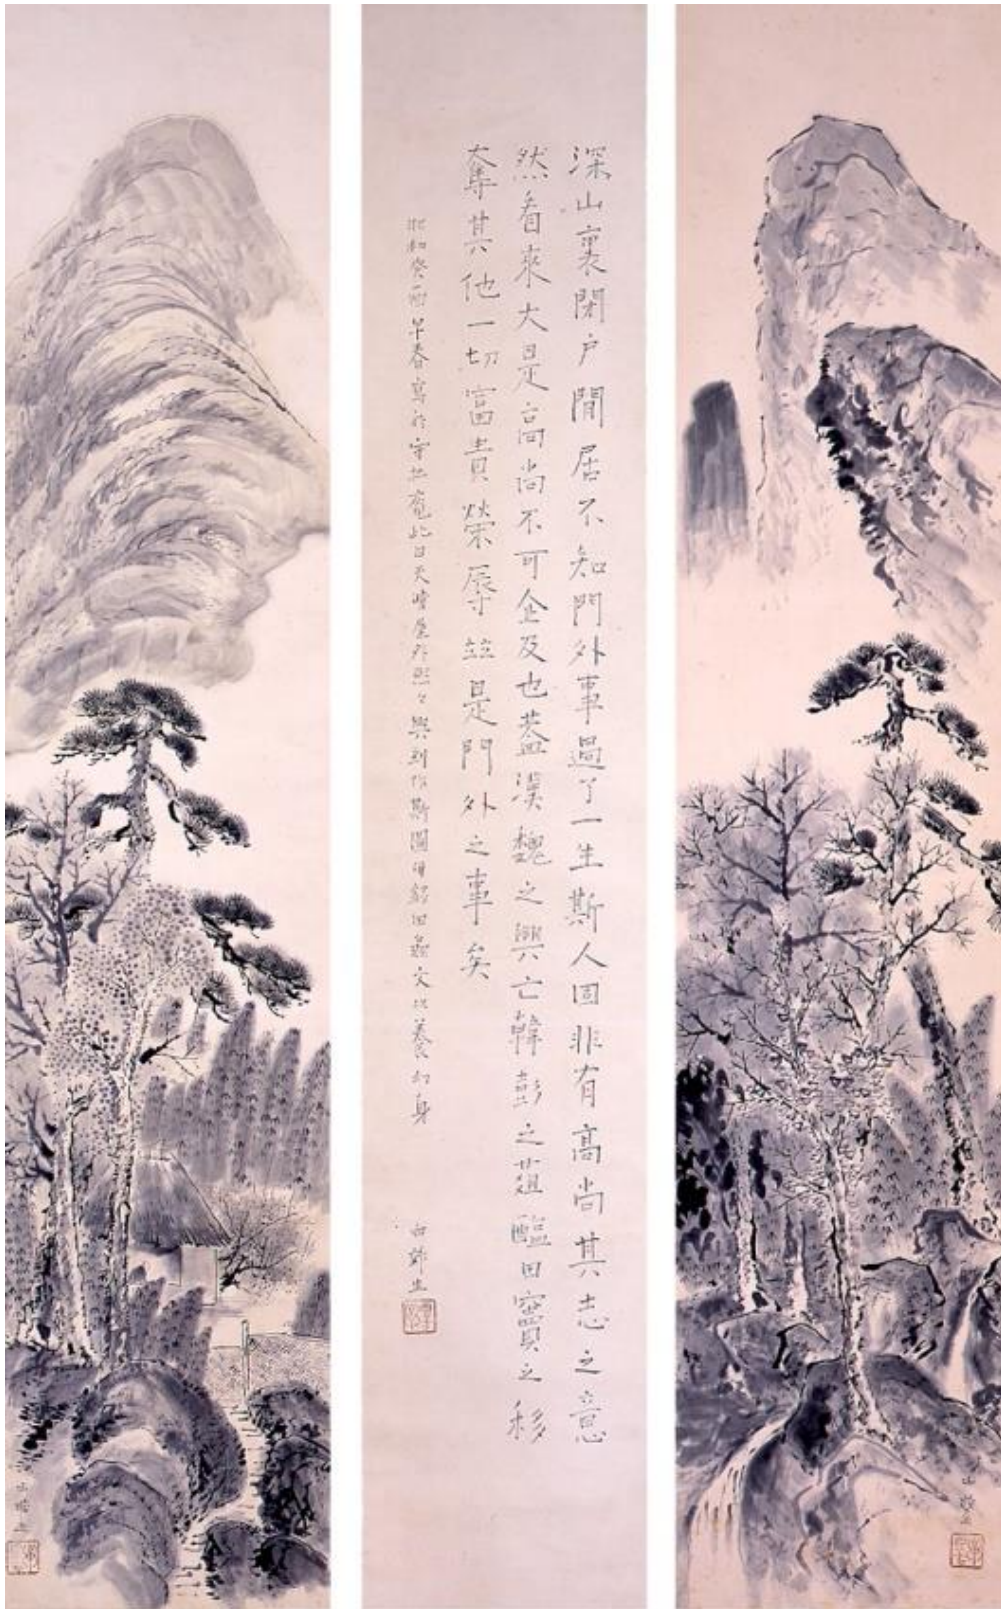 深山裏閉戸閒居不知門外事過了一生斯人固非有高尚其志之意
然看來大是高尚不可企及也蓋漢魏之興亡韓彭之葅醢田竇之移
奪其他一切富貴榮辱並是門外之事矣
昭和癸酉早春寫於守拙庵此日天晴屋外熙々興到作斯圖